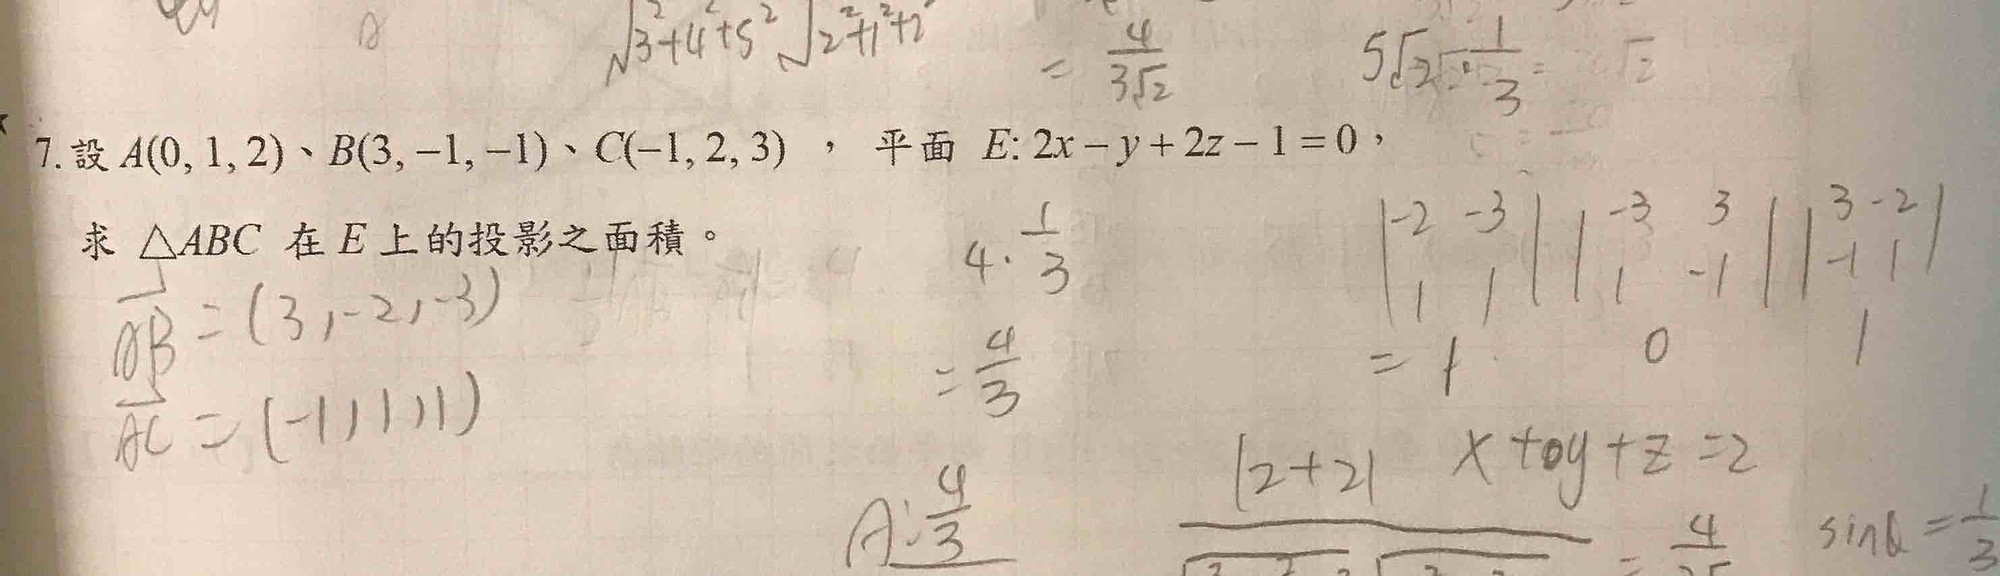 √3²+4²+5² √2²+1²+2²
= 4/3√2
5√2 · 1/3 = √2
7. 設 A(0, 1, 2)、B(3, −1, −1)、C(−1, 2, 3) ， 平面 E: 2x − y + 2z − 1 = 0，
求 △ABC 在 E 上的投影之面積。
AB = (3, -2, -3)
AC = (-1, 1, 1)
4 · 1/3
= 4/3
A: 4/3
|-2 -3| |-3 3| |3 -2|
|1 1| |1 -1| |-1 1|
= 1 0 1
x + 0y + z = 2
|2+2|
= 4
sinθ = 1/3